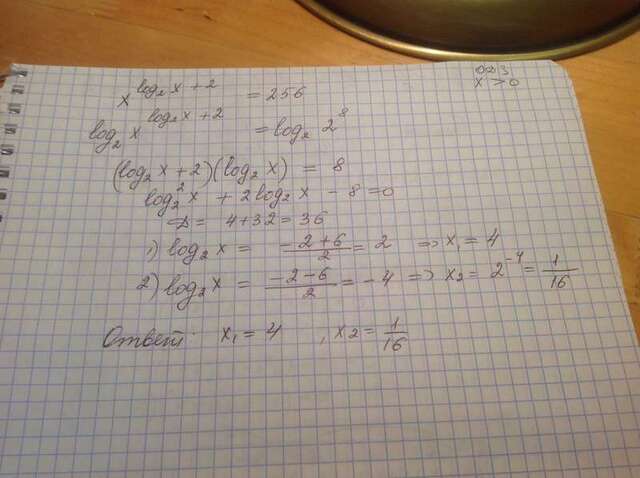 ОДЗ
x > 0
x^(log₂x + 2) = 256
log₂ x^(log₂x + 2) = log₂ 2^8
(log₂x + 2)(log₂x) = 8
log₂²x + 2log₂x - 8 = 0
D = 4 + 32 = 36
1) log₂x = (-2+6)/2 = 2 => x₁ = 4
2) log₂x = (-2-6)/2 = -4 => x₂ = 2^-4 = 1/16
Ответ: x₁ = 4, x₂ = 1/16